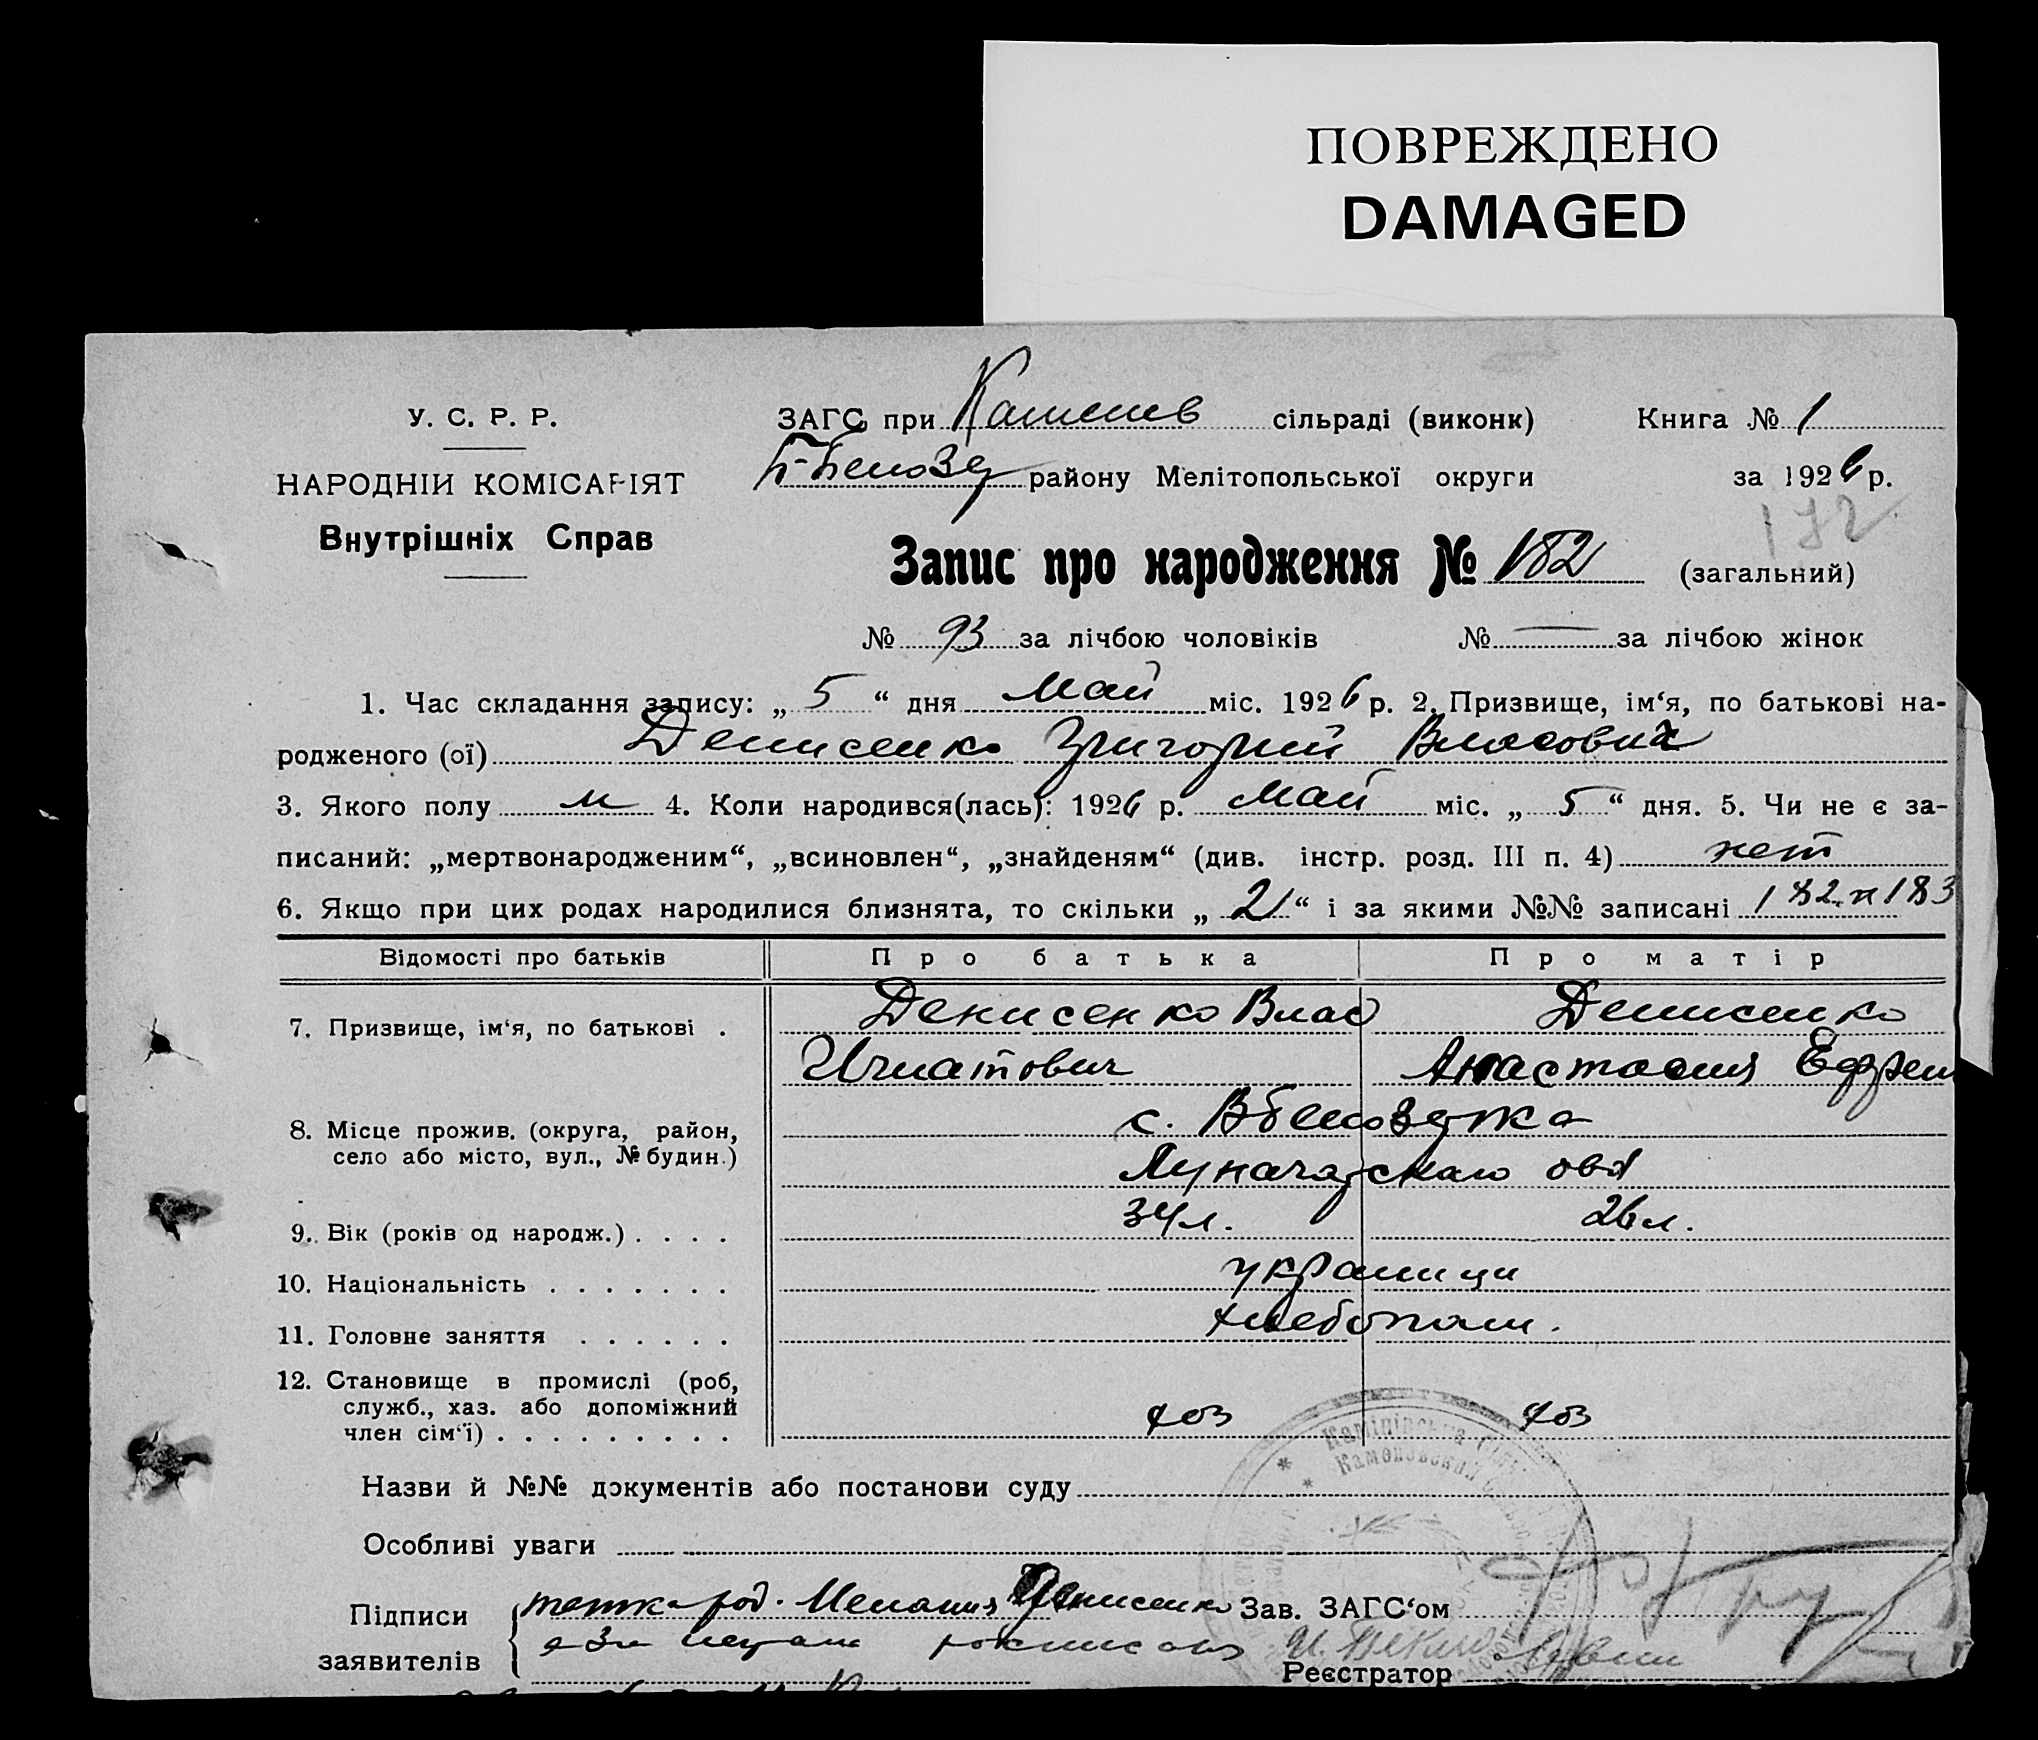 ПОВРЕЖДЕНО
DAMAGED
У. С. Р. Р.
НАРОДНІЙ КОМІСАРІЯТ
Внутрішніх Справ
ЗАГС при Камень сільраді (виконк) Книга № 1
Б-Белозер району Мелітопольської округи за 1926 р.
172
Запис про народження № 182 (загальний)
№ 93 за лічбою чоловіків № — за лічбою жінок
1. Час складання запису: „ 5 “ дня Май міс. 1926 р. 2. Призвище, ім‘я, по батькові на-
родженого (ої) Денисенко Григорий Власович
3. Якого полу м 4. Коли народився(лась): 1926 р. Май міс. „ 5 “ дня. 5. Чи не є за-
писаний: „мертвонародженим“, „всиновлен“, „знайденям“ (див. інстр. розд. III п. 4) нет
6. Якщо при цих родах народилися близнята, то скільки „ 2 “ і за якими №№ записані 182 и 183
Відомості про батьків Про батька Про матір
7. Призвище, ім‘я, по батькові . Денисенко Влас Денисенко
Игнатович Анастасия Ефрем
8. Місце прожив. (округа, район, с. Вбелозерка
село або місто, вул., № будин.) Луначарского
9. Вік (років од народж.) . . . . 34 л. 26 л.
10. Національність . . . . . . . украинци
11. Головне заняття . . . . . . хлебопаш.
12. Становище в промислі (роб,
служб., хаз. або допоміжний
член сім‘ї) . . . . . . . . . хоз хоз
Назви й №№ документів або постанови суду
Особливі уваги
Підписи тетка род. Мелания Денисенко Зав. ЗАГС‘ом
заявителів а за неграм
Реєстратор